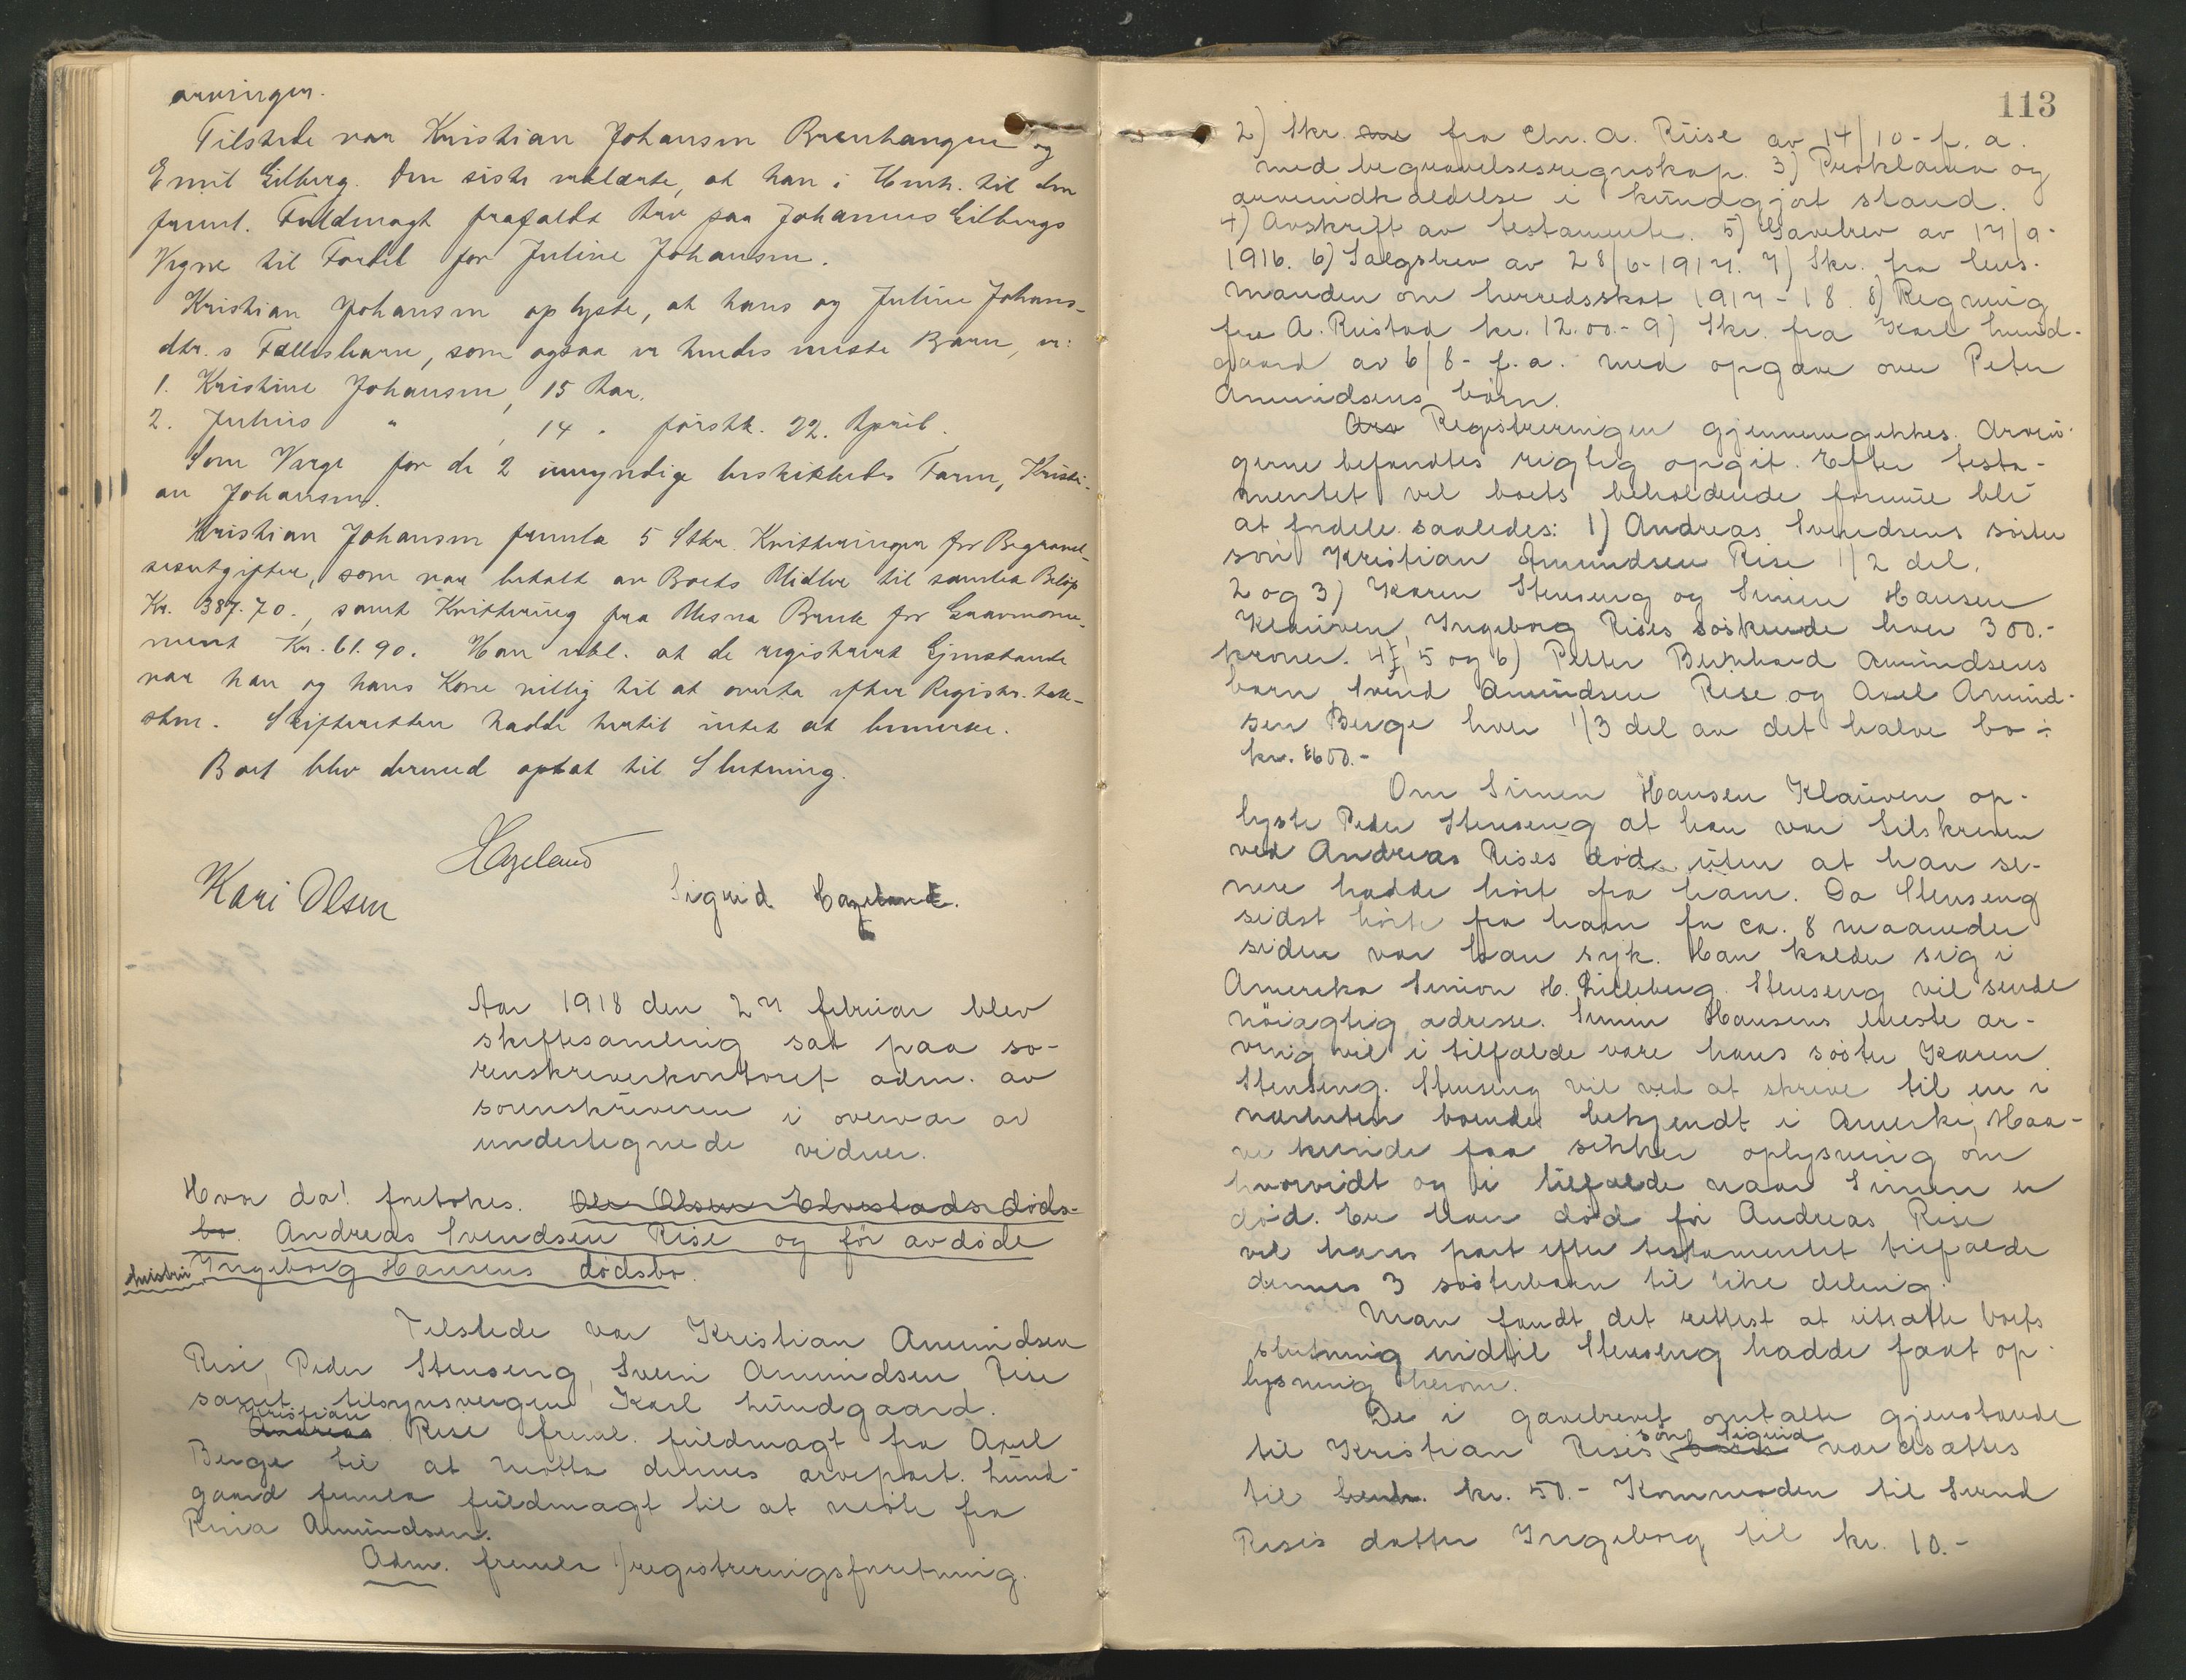 arvinger.
Tilstede var Kristian Johansen Brenhaugen og
Emil Gilberg. Den siste erklærte, at han i Henh. til den
freml. Fuldmagt frafaldt Arv paa Johannes Gilbergs
Vegne til Fordel for Juline Johansen.
Kristian Johansen oplyste, at hans og Juline Johans-
dtr.s Fællesbarn, som ogsaa er hendes eneste Barn, er:
1. Kristine Johansen, 15 Aar.
2. Julius " , 14 " førstk. 22. April.
Som Verge for de 2 umyndige beskikkedes Faren, Kristi-
an Johansen.
Kristian Johansen fremla 5 Stkr. Kvitteringer for Begravel-
sesutgifter, som var betalt av Boets Midler til samlet Beløp
Kr. 387.70., samt Kvittering fra Mesna Bruk for Gravmonu-
ment Kr. 61.90. Han erkl. at de registrert Gjenstande
var han og hans Kone villig til at overta efter Registr. tak-
sten. Skifteretten hadde hertil intet at bemerke.
Boet blev dermed optat til Slutning.
Hazeland
Kari Olsen
Sigrid Hazeland.
Aar 1918 den 27 februar blev
skiftesamling sat paa so-
renskriverkontoret adm. av
sorenskriveren i overvær av
undertegnede vidner.
Hvor da! foretokes. Ole Olsen Elvestads døds-
bo. Andreas Svendsen Rise og før avdøde
hustru Ingeborg Hansens dødsbo.
Tilstede var Kristian Amundsen
Rise, Peder Stenseng, Svein Amundsen Rise
samt tilsynsvergen Karl Lundgaard.
Kristian
Andreas Rise freml. fuldmagt fra Axel
Berge til at motta dennes arvepart. Lund-
gaard fremla fuldmagt til at møte fra
Amundsen.
Adm. fremla 1) registreringsforretning.
113
2) Skr. fra Chr. A. Riise av 14/10- f. a.
med begravelsesregnskap. 3) Proklama og
arveindkaldelse i kundgjort stand.
4) Avskrift av testamente. 5) Gavebrev av 17/9-
1916. 6) Salgsbrev av 28/6-1917. 7) Skr. fra lens-
manden om herredsskat 1917-18. 8) Regning
fra A. Rustad kr. 12.00.- 9) Skr. fra Karl Lund-
gaard av 6/8- f. a. med opgave over Peter
Amundsens børn.
Arv Registreringen gjennemgikkes. Arvin-
gerne befandtes rigtig opgit. Efter testa-
mentet vil boets beholdende formue bli
at fordele saaledes: 1) Andreas Svendsens søster
søn Kristian Amundsen Rise 1/2 del.
2 og 3) Karen Stenseng og Simen Hansen
Klauven, Ingeborg Rises søskende hver 300.-
kroner. 4, 5 og 6) Petter Bernhard Amundsens
barn Svend Amundsen Rise og Axel Amund-
sen Berge hver 1/3 del av det halve bo ÷
kr. 600.-
Om Simen Hansen Klauven op-
lyste Peder Stenseng at han var tilskreven
ved Andreas Rises død uten at han se-
nere hadde hørt fra ham. Da Stenseng
sidst hørte fra ham for ca. 8 maaneder
siden var han syk. Han kalder sig i
Amerika Simon H. Lilleberg. Stenseng vil sende
nøiagtig adresse. Simen Hansens eneste ar-
ving vil i tilfælde være hans søster Karen
Stenseng. Stenseng vil ved at skrive til en i
nærheten boende bekjendt i Amerika, Haa-
ve kunde faa sikker oplysning om
hvorvidt og i tilfælde naar Simen er
død. Er han død før Andreas Rise
vil hans part efter testamentet tilfalde
dennes 3 søsterbarn til like deling.
Man fandt det rettest at utsætte boets
slutning indtil Stenseng hadde faat op-
lysning herom.
De i gavebrevet omtalte gjenstande
søn Sigurd
til Kristian Rises værdsættes
til kr. 50.- Kommoden til Svend
Rises datter Ingeborg til kr. 10.-